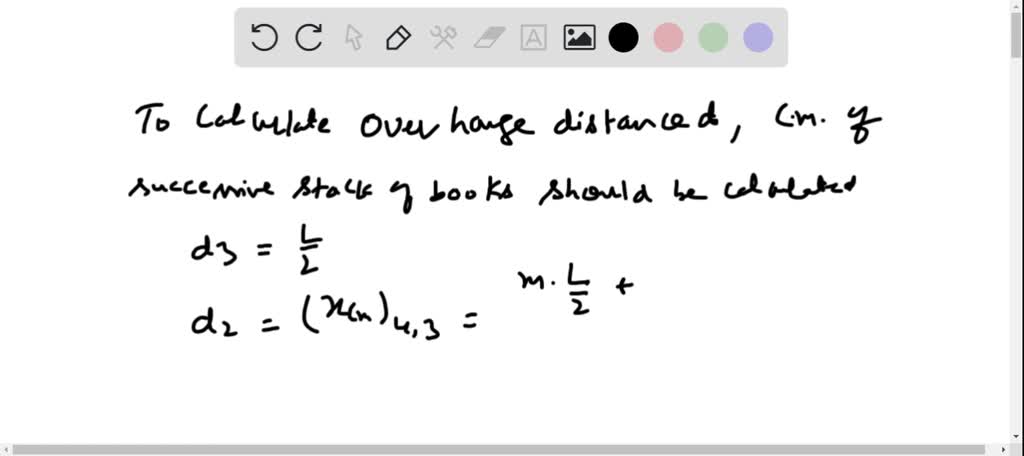 To Calculate Over hange distance d, C.m. of
successive stack of books should be calculated
d3 = L/2
d2 = (xcm)4,3 = m. L/2 +